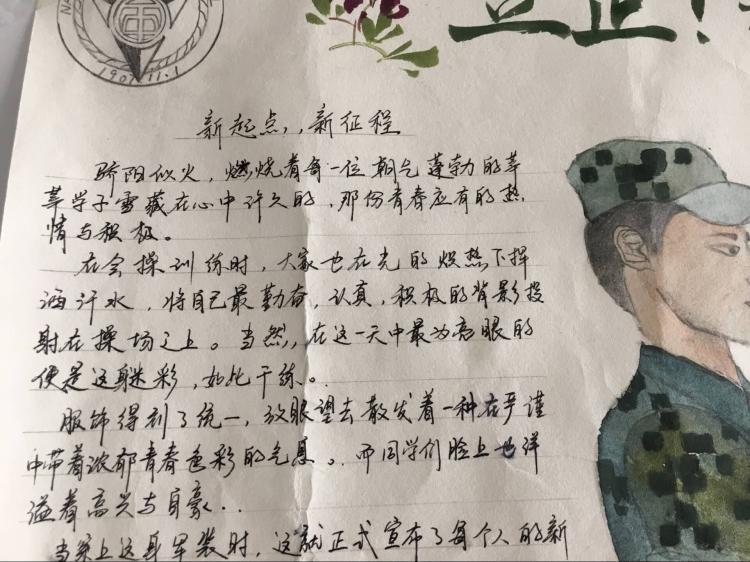 NA
1907.11.1
立正!
新起点,,新征程
骄阳似火,燃烧着每一位朝气蓬勃的莘
莘学子雪藏在心中许久的,那份青春应有的热
情与积极。
在会操训练时,大家也在光的炽热下挥
洒汗水,将自己最勤奋,认真,积极的背影投
射在操场之上。当然,在这一天中最为亮眼的
便是这迷彩,如此干练。
服饰得到了统一,放眼望去散发着一种在严谨
中带着浓郁青春色彩的气息。而同学们脸上也洋
溢着高兴与自豪..
当穿上这身军装时,这就正式宣布了每个人的新